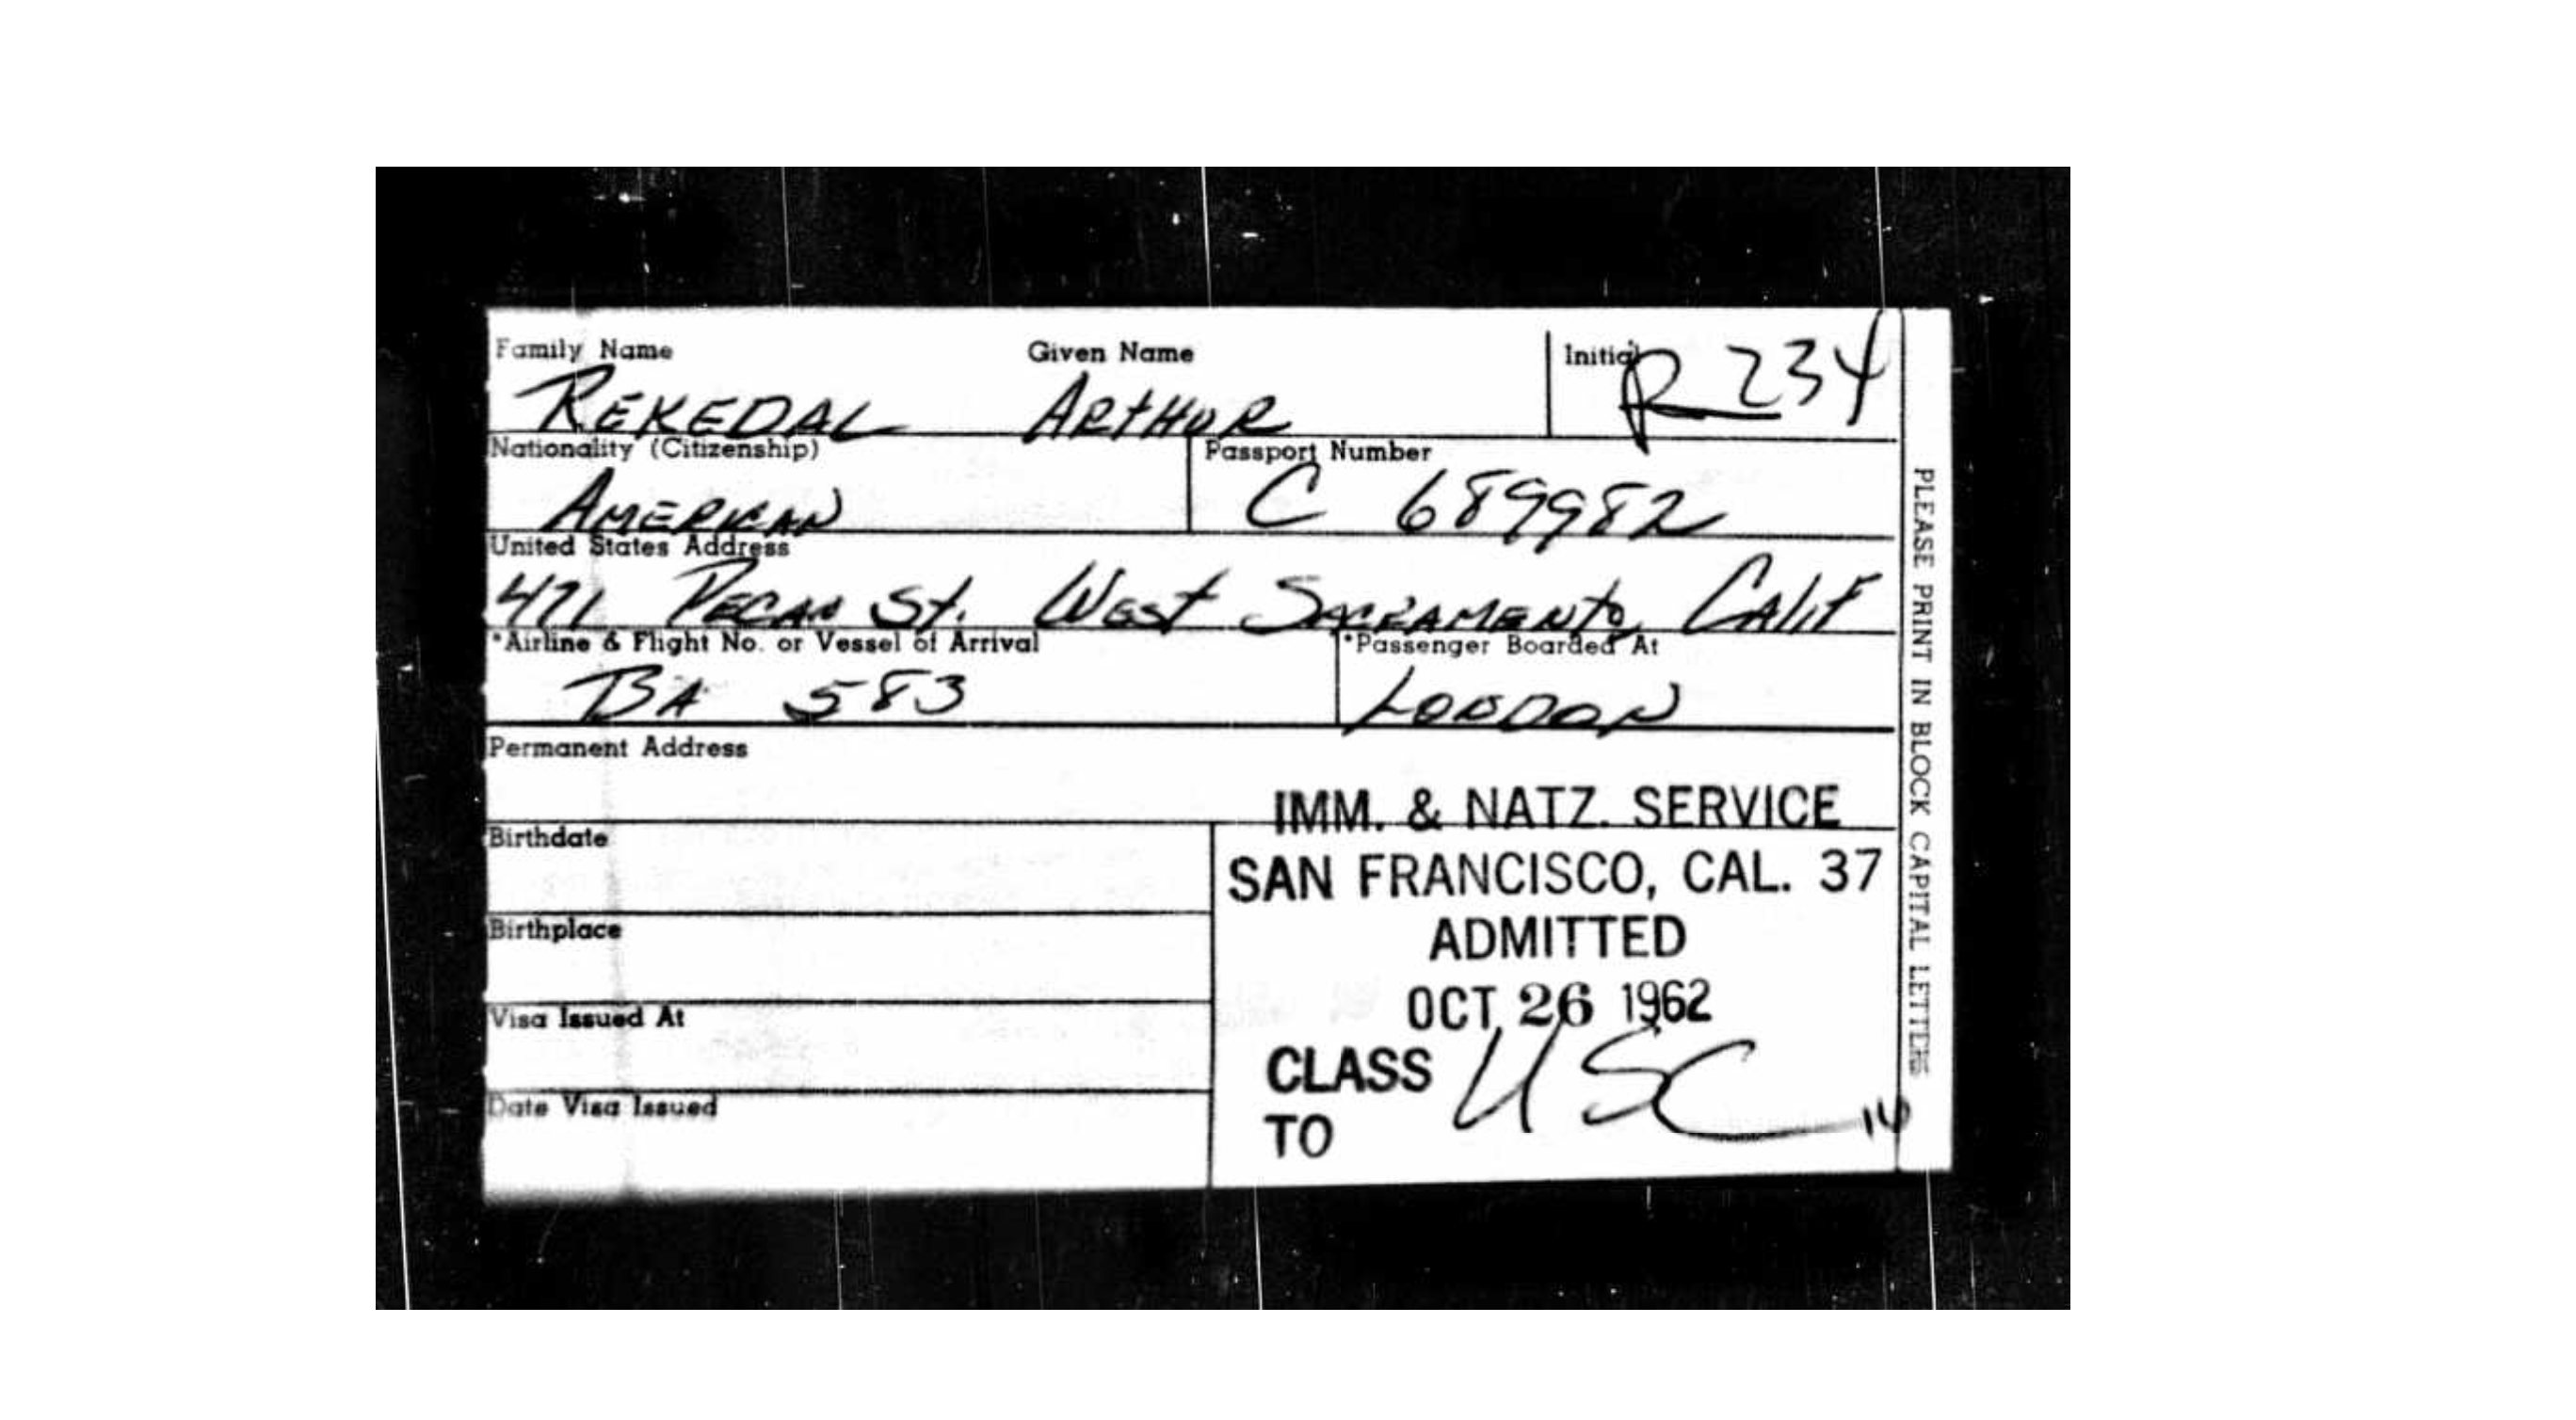 Family Name Given Name Initial
REKEDAL ARTHUR R 234
Nationality (Citizenship) Passport Number
AMERICAN C 689982
United States Address
471 PECAN St. WEST SACRAMENTO, CALIF
*Airline & Flight No. or Vessel of Arrival *Passenger Boarded At
BA 583 LONDON
Permanent Address
IMM. & NATZ. SERVICE
Birthdate
SAN FRANCISCO, CAL. 37
Birthplace
ADMITTED
OCT 26 1962
Visa Issued At
CLASS USC
Date Visa Issued
TO
PLEASE PRINT IN BLOCK CAPITAL LETTERS